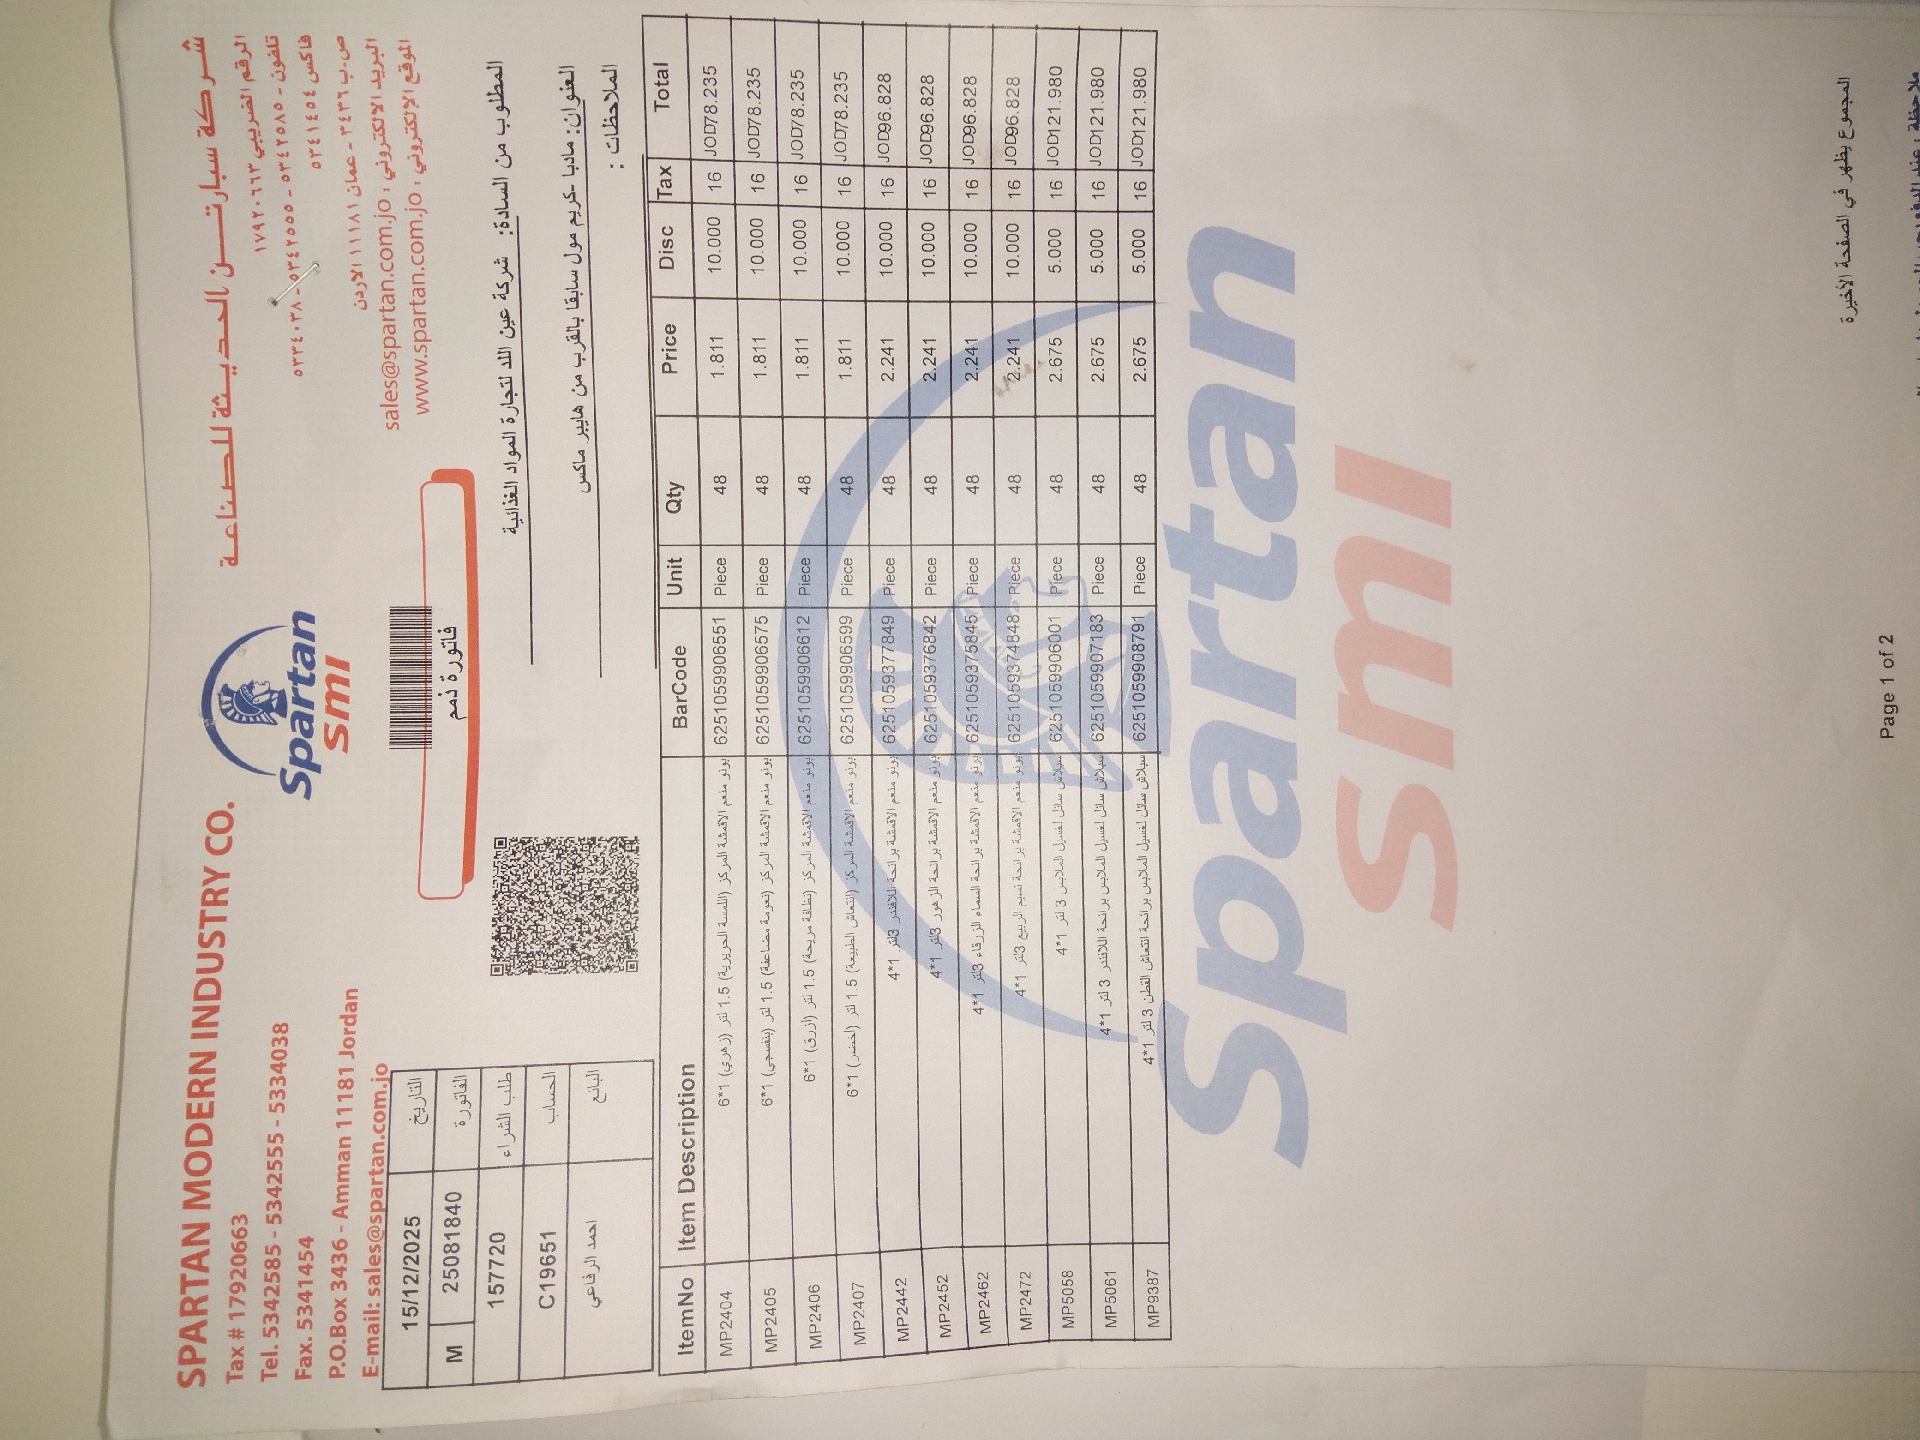 SPARTAN MODERN INDUSTRY CO.
Tax # 179920663
Tel. 5342585 - 5342555 - 5334038
Fax. 5341454
P.O.Box 3436 - Amman 11181 Jordan
E-mail: sales@spartan.com.jo
Spartan
smi
شركة سبارتن الحديثة للصناعة
الرقم الضريبي ١٧٩٢٠٦٦٣
تلفون - ٥٣٤٢٥٨٥ - ٥٣٤٢٥٥٥ - ٥٣٣٤٠٣٨
فاكس ٥٣٤١٤٥٤
ص.ب ٣٤٣٦ - عمان ١١١٨١ الاردن
البريد الالكتروني : sales@spartan.com.jo
الموقع الإلكتروني : www.spartan.com.jo
15/12/2025 التاريخ
M 25081840 الفاتورة
157720 طلب الشراء
C19651 الحساب
احمد الرفاعي البائع
فاتورة ذمم
المطلوب من السادة: شركة عين اللد لتجارة المواد الغذائية
العنوان: مادبا -كريم مول سابقا بالقرب من هايبر ماكس
الملاحظات :
ItemNo Item Description BarCode Unit Qty Price Disc Tax Total
MP2404 بونو منعم الاقمشة المركز (اللمسة الحريرية) 1.5 لتر (زهري) 1*6 6251059906551 Piece 48 1.811 10.000 16 JOD78.235
MP2405 بونو منعم الاقمشة المركز (نعومة مضاعفة) 1.5 لتر (بنفسجي) 1*6 6251059906575 Piece 48 1.811 10.000 16 JOD78.235
MP2406 بونو منعم الاقمشة المركز (نظافة مريحة) 1.5 لتر (ازرق) 1*6 6251059906612 Piece 48 1.811 10.000 16 JOD78.235
MP2407 بونو منعم الاقمشة المركز (انتعاش الطبيعة) 1.5 لتر (اخضر) 1*6 6251059906599 Piece 48 1.811 10.000 16 JOD78.235
MP2442 بونو منعم الاقمشة برائحة اللافندر 3لتر 1*4 6251059377849 Piece 48 2.241 10.000 16 JOD96.828
MP2452 بونو منعم الاقمشة برائحة الزهور 3لتر 1*4 6251059376842 Piece 48 2.241 10.000 16 JOD96.828
MP2462 بونو منعم الاقمشة برائحة السماء الزرقاء 3لتر 1*4 6251059375845 Piece 48 2.241 10.000 16 JOD96.828
MP2472 بونو منعم الاقمشة برائحة نسيم الربيع 3لتر 1*4 6251059374848 Piece 48 2.241 10.000 16 JOD96.828
MP5058 سبلاش سائل لغسيل الملابس 3 لتر 1*4 6251059906001 Piece 48 2.675 5.000 16 JOD121.980
MP5061 سبلاش سائل لغسيل الملابس برائحة اللافندر 3 لتر 1*4 6251059907183 Piece 48 2.675 5.000 16 JOD121.980
MP9387 سبلاش سائل لغسيل الملابس برائحة انتعاش القطن 3 لتر 1*4 6251059908791 Piece 48 2.675 5.000 16 JOD121.980
Spartan
smi
المجموع يظهر في الصفحة الأخيرة
Page 1 of 2